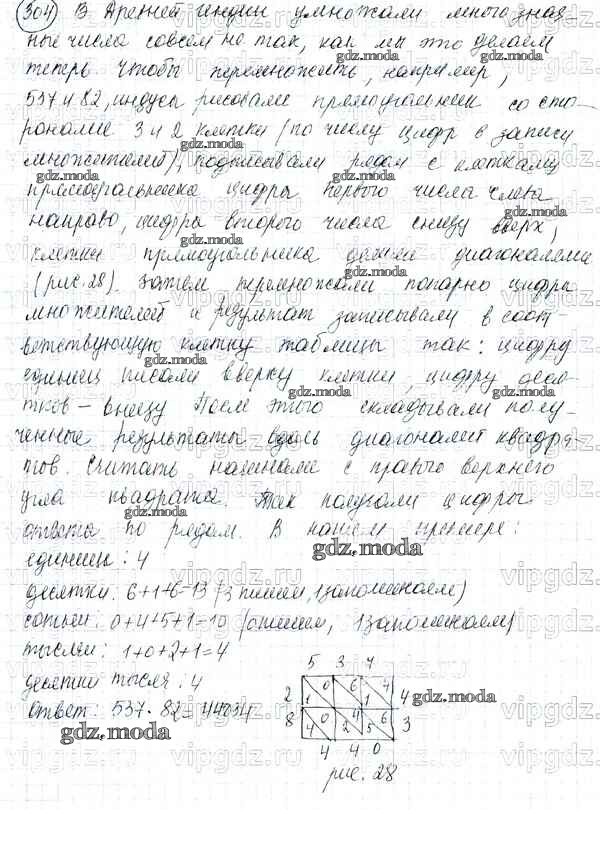 304) В Древней Индии умножали многознач-
ные числа совсем не так, как мы это делаем
теперь Чтобы перемножить, например,
537 и 82, индусы рисовали прямоугольник со сто-
ронами 3 и 2 клетки (по числу цифр в записи
множителей), подписывали рядом с клетками
прямоугольника цифры первого числа слева
направо, цифры второго числа снизу вверх,
клетки прямоугольника делили диагоналями
(рис. 28). Затем перемножали попарно цифры
множителей и результат записывали в соот-
ветствующую клетку таблицы так: цифру
единиц писали вверху клетки, цифру деся-
тков - внизу После этого складывали полу-
ченные результаты вдоль диагоналей квадра-
тов. Считать начинали с правого верхнего
угла квадрата. Так получали цифры
ответа по рядам. В нашем примере:
единиц: 4
десятки: 6+1+6=13 (3 пишем, 1 запоминаем)
сотни: 0+4+5+1=10 (0 пишем, 1 запоминаем)
тысячи: 1+0+2+1=4
десятки тысяч: 4
ответ: 537·82=44034
5 3 7
2 1 0 6 1 4 4
8 4 0 2 4 5 6 3
4 4 0
рис. 28
gdz.moda
vipgdz.ru